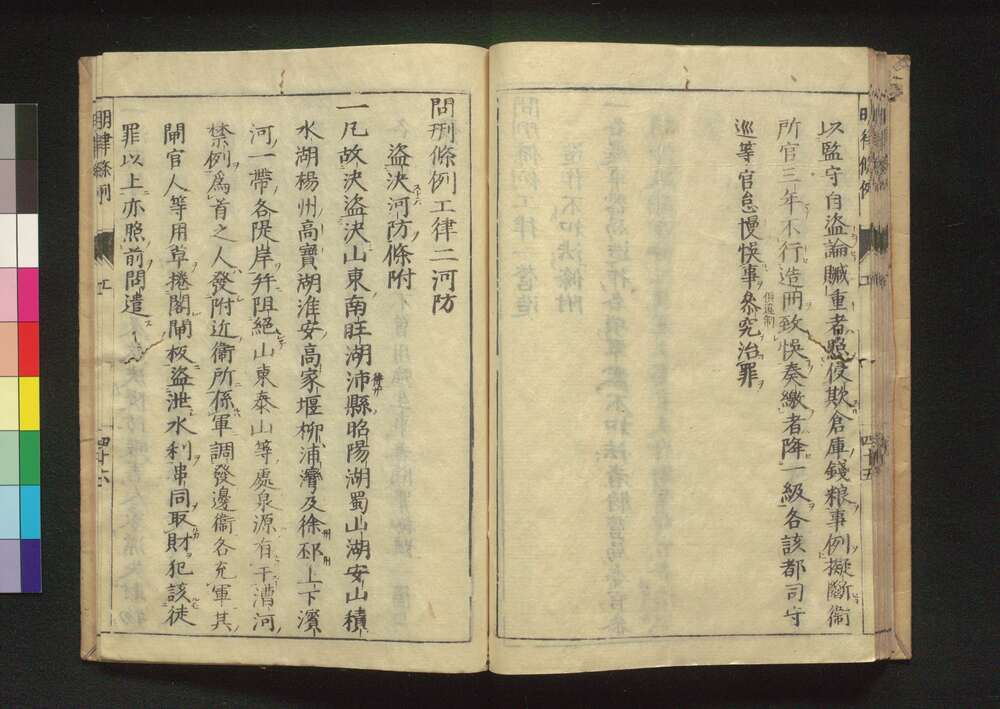 以監守自盜論贓重者照侵欺倉庫錢粮事例擬斷衞
所官三年不行造冊致悞奏繳者降一級各該都司守
巡等官怠慢悞事参究治罪
問刑條例工律二河防
盜决河防條附
一凡故决盜决山東南旺湖沛縣昭陽湖蜀山湖安山積
水湖楊州高寶湖淮安高家堰柳浦灣及徐邳上下濱
河一帶各隄岸并阻絕山東泰山等處泉源有干漕河
禁例爲首之人發附近衛所係軍調發邊衞各充軍其
閘官人等用草捲閣閘板盜泄水利串同取財犯該徒
罪以上亦照前問遣